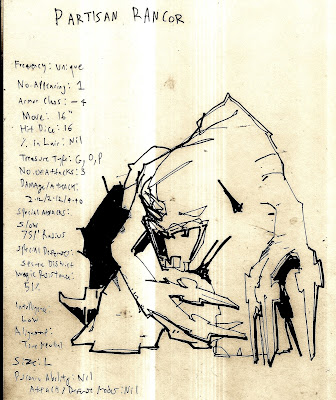 PARTISAN RANCOR
Frequency: Unique
No. Appearing: 1
Armor Class: -4
Move: 16"
Hit Dice: 16
% in Lair: Nil
Treasure Type: G, O, P
No. of Attacks: 3
Damage/Attack:
2-12/2-12/4-40
Special Attacks:
Slow
Radius
Special Defenses:
Secure District
Magic Resistance:
51%
Intelligence
Low
Alignment:
SIZE: L
Psionic Ability: Nil
Attack/Defense Modes: Nil